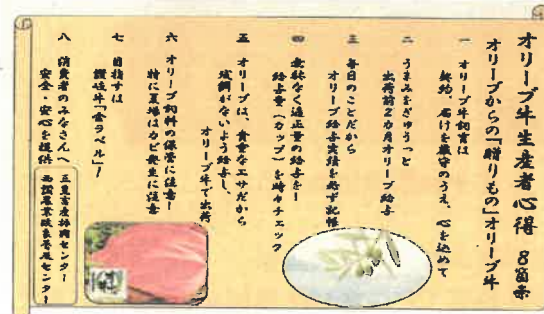 オリーブ牛生産者心得 8箇条
オリーブからの「贈りもの」オリーブ牛
一 オリーブ牛飼育は
契約、届けを厳守のうえ、心を込めて
二 うまみをぎゅうっと
出荷前2カ月オリーブ給与
三 毎日のことだから
オリーブ給与実績を必ず記帳
四 無駄なく適正量の給与を!
給与量(カップ)を時々チェック
五 オリーブは、貴重なエサだから
残餌がないよう給与し、
オリーブ牛で出荷
六 オリーブ飼料の保管に注意!
特に夏場はカビ発生に注意
七 目指すは
讃岐牛「金ラベル」!
八 消費者のみなさんへ
安全・安心を提供
西讃農業改良普及センター